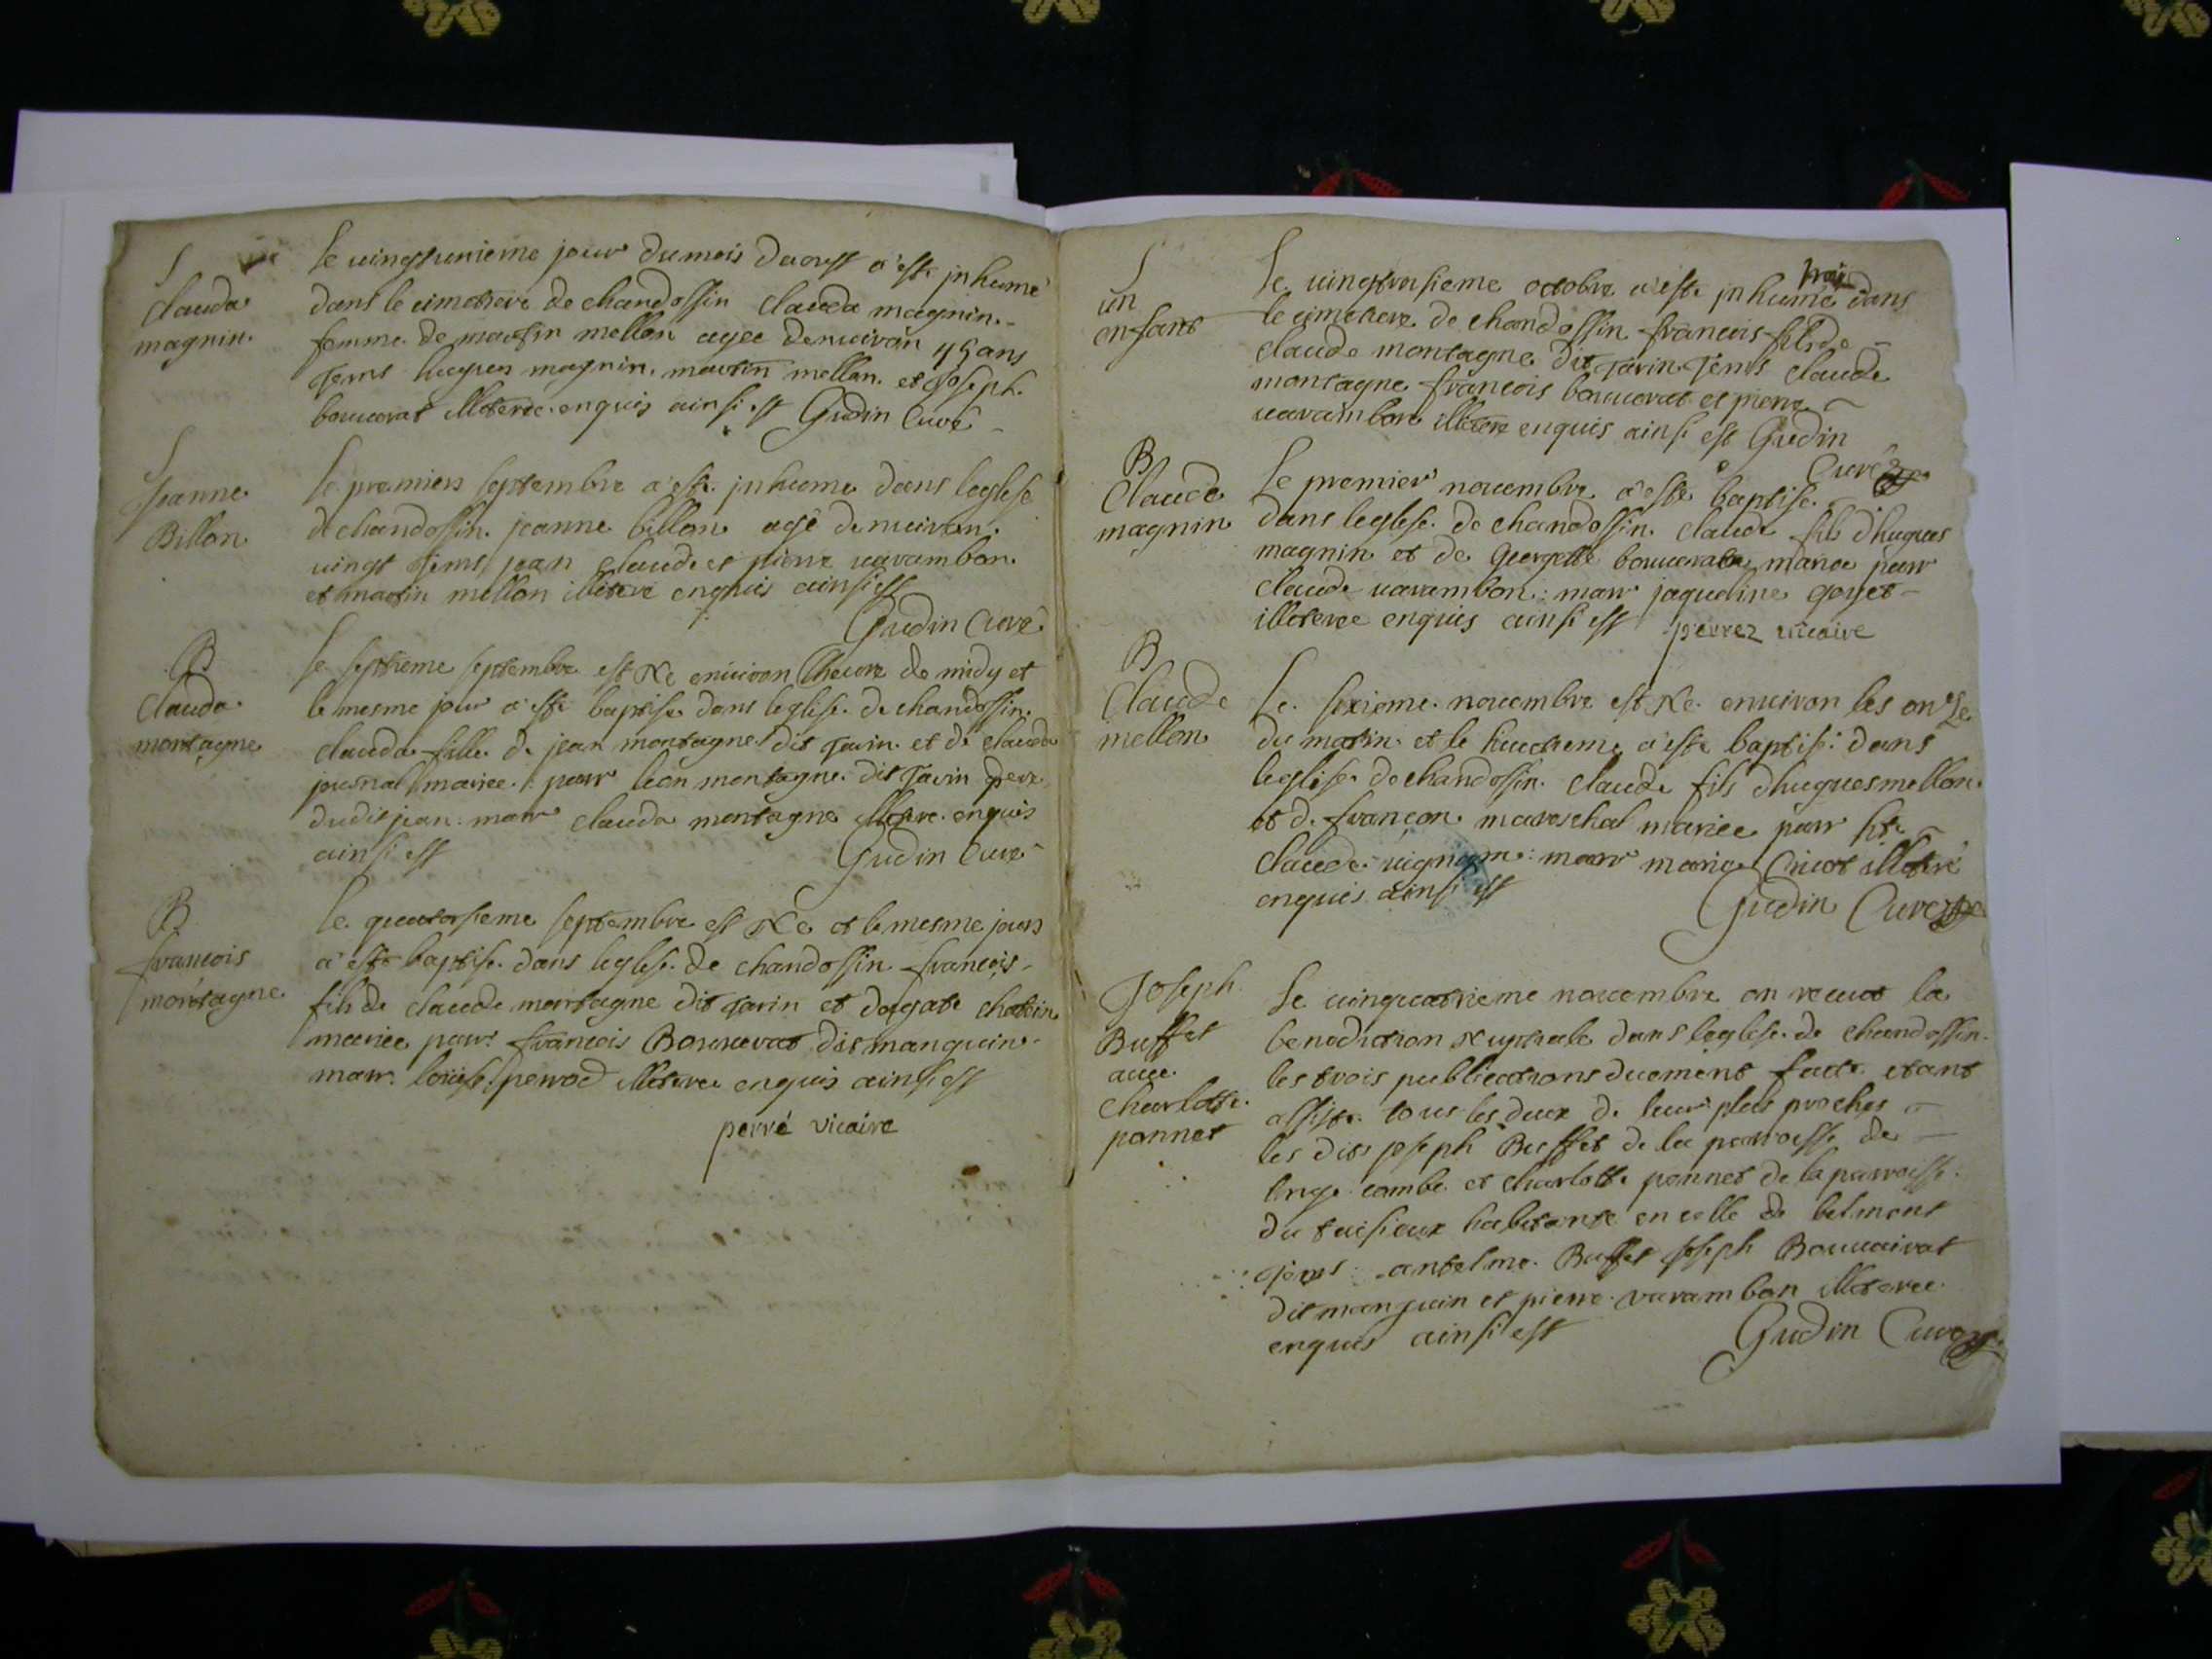 S
Clauda
magnin.
Le uingtunieme jour du mois daoust a esté jnhumé
dans le cimetiere de chandossin clauda magnin.
femme de martin mellon agee denuiron 45 ans
Tems hugues magnin. martin mellon. et Joseph.
bouuerat illiteré. enquis ainsi est Gudin Curé
S
Jeanne
Billon
Le premiers septembre a esté jnhume dans leglese
de chandossin. jeanne billon agé denuiron.
uingt Tems jean claude et pierre uarambon.
et martin mellon illiteré enquis ainsi est
Gudin Curé
B
Clauda
montagne
Le septieme septembre est Né enuiron lheure de midy et
le mesme jour a esté baptise dans leglise. de chandossin.
clauda fille de jean montagne dit Tavin et de clauda
journal mariee. parr leon montagne dit Tavin pere
dudit jean. marr clauda montagne illitere. enquis
ainsi est Gudin Curé
B
francois
montagne
Le quatorsieme septembre est Né et le mesme jours
a esté baptise dans leglese. de chandossin. francois
fils de claude montagne dit Tavin et dagate chatein
mariee parr francois Bouuerat dit manguin
marr. louise perrod illiteree enquis ainsi est
perré vicaire
S
un
enfant
Le uingtroisieme octobre a esté jnhumé dans
le cimetiere de chandossin francois fils de
claude montagne dit Tavin. Tems claude
montagne francois bouuerat et pierre
uarambon illitere enquis ainsi est Gudin
Curé
B
Claude
magnin
Le premier nouembre a esté baptise.
dans leglese. de chandossin. claude fils d'hugues
magnin et de Georgette bouuerate mariee parr
claude uarambon: marr jaqueline goyet
illiteree enquis ainsi est perrez vicaire
B
Claude
mellon
Le sixieme nouembre est Né enuiron les onze
du matin et le huictieme a esté baptisé dans
leglise. de chandossin. claude fils dhugues mellon.
et de françon mareschal mariee parr
claude marr marie illiteré
enquis ainsi est Gudin Curé
Joseph
Buffet
auec
Charlotte
ponnet
Le uingquatrieme nouembre on receut la
benediction Nuptiale dans leglese. de chandossin.
les trois publications duement faite etant
assiste tous les deux de leur plus proches
les dits joseph Buffet de la parroisse de
linge combe et charlotte ponnet de la parroisse
du habitante en celle de belmont
Tems antelme. Buffet Joseph Bouuairat
dit manguin et pierre varambon illiteree.
enquis ainsi est Gudin Curé